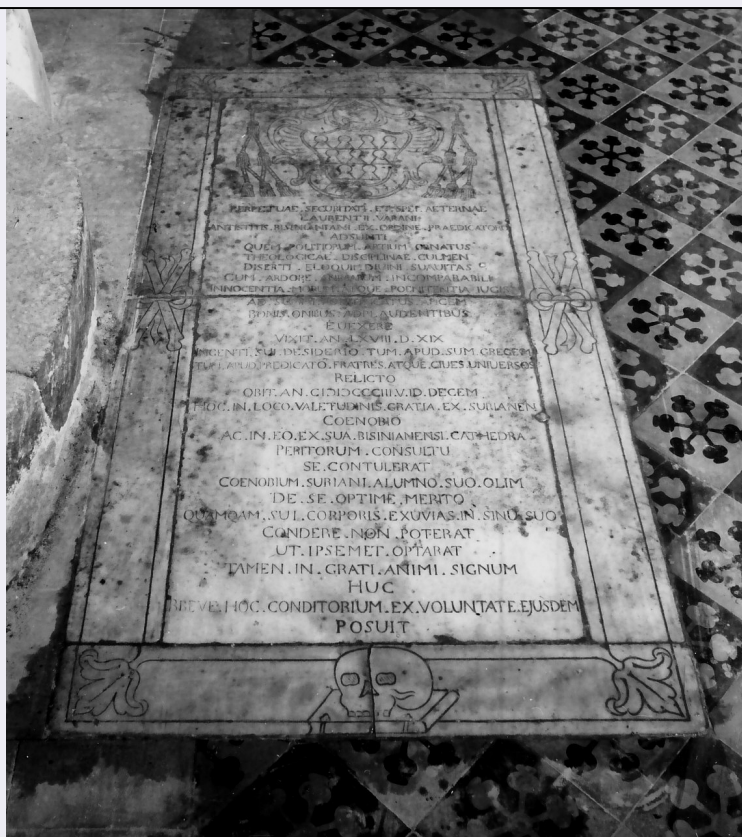 PERPETUAE . SECURITATI . ET . SPEI . AETERNAE
LAURENTII . VARANI
ANTISTITIS . BISINIANI . EX . ORDINE . PRAEDICATOR
ADSUNTI
QUEM . POLITIORUM . ARTIUM . ORNATUS
THEOLOGICAE . DISCIPLINAE . CULMEN
DISERTI . ELOQUII . DIVINI . SUAVITAS
CUM . ARDORE . ANIMARUM . INCOMPARABILI
INNOCENTIA . MORUM . ATQUE . POENITENTIA . JUGIS
AD
BONIS . OMIBUS . AUDENTIBUS
EUEXERE
VIXIT . AN . LXVIII . D . XIX
INGENTI . SUI . DESIDERIO . TUM . APUD . SUM . GREGEM
TUM . APUD . PREDICATO . FRATRES . ATQUE . CIUES . UNIUERSOS
RELICTO
OBIIT . AN . V . ID . DECEM
HOC . IN . LOCO . VALETUDINIS . GRATIA . EX . SURIANEN
COENOBIO
AC . IN . EO . EX . SUA . BISINIANENSI . CATHEDRA
PERITORUM . CONSULTU
SE . CONTULERAT
COENOBIUM . SURIANI . ALUMNO . SUO . OLIM
DE . SE . OPTIME . MERITO
QUAMQAM . SUI . CORPORIS . EXUVIAS . IN . SINU . SUO
CONDERE . NON . POTERAT
UT . IPSEMET . OPTARAT
TAMEN . IN . GRATI . ANIMI . SIGNUM
HUC
BREVE . HOC . CONDITORIUM . EX . VOLUNTATE . EJUSDEM
POSUIT